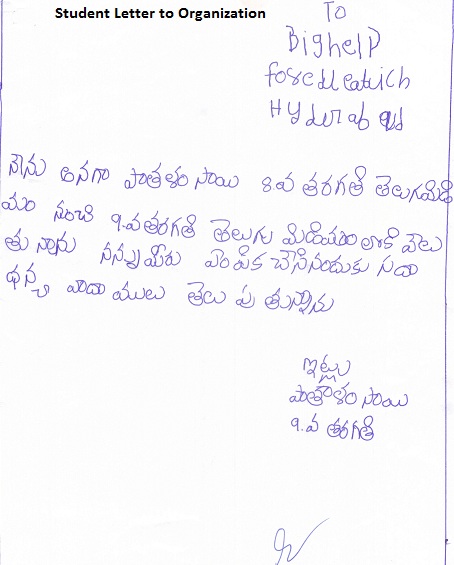 Student Letter to Organization
To
Bighelp
for education
Hyderabad
నేను అనగా పాతళం సాయి 8వ తరగతి తెలుగుమిడి
యం నుంచి 9.వతరగతి తెలుగు మిడియంలోకి వెలు
తు న్నాను నన్ను మీరు ఎంపిక చేసినందుకు సదా
ధన్య వాదా ములు తెలు పు తున్నాను
ఇట్లు
పాతాళం సాయి
9.వ తరగతి